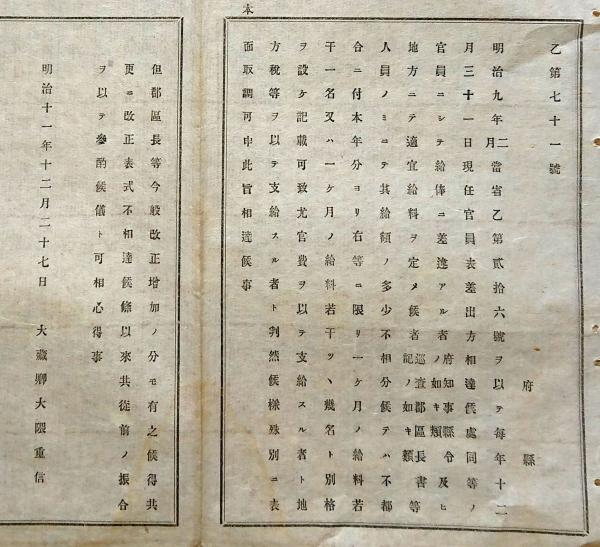 本
乙第七十一號
府縣
明治九年二月當省乙第貳拾六號ヲ以テ每年十二
月三十一日現任官員表差出方相達候處同等ノ
官員ニシテ給俸ニ差違アル者府知事縣令及ヒノ如キ類
地方ニテ適宜給料ヲ定メ候者巡査郡區長書記ノ如キ類等
人員ノミニテ其給額ノ多少不相分候テハ不都
合ニ付本年分ヨリ右等ニ限リ一ケ月ノ給料若
干一名又ハ一ケ月ノ給料若干ツヽ幾名ト別格
ヲ設ケ記載可致尤官費ヲ以テ支給スル者ト地
方稅等ヲ以テ支給スル者ト判然候樣殊別ニ表
面取調可申此旨相達候事
但郡區長等今般改正增加ノ分モ有之候得共
更ニ改正表式不相達候條以來共從前ノ振合
ヲ以テ參酌候儀ト可相心得事
明治十一年十二月二十七日 大藏卿大隈重信